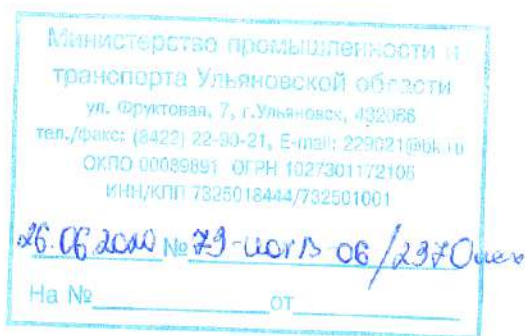 Министерство промышленности и
транспорта Ульяновской области
ул. Фруктовая, 7, г.Ульяновск, 432066
тел./факс: (8422) 22-90-21, E-mail: 229021@bk.ru
ОКПО 00089891 ОГРН 1027301172106
ИНН/КПП 7325018444/732501001
26.06.2020 № 73-ИОГВ-06/297
На № от